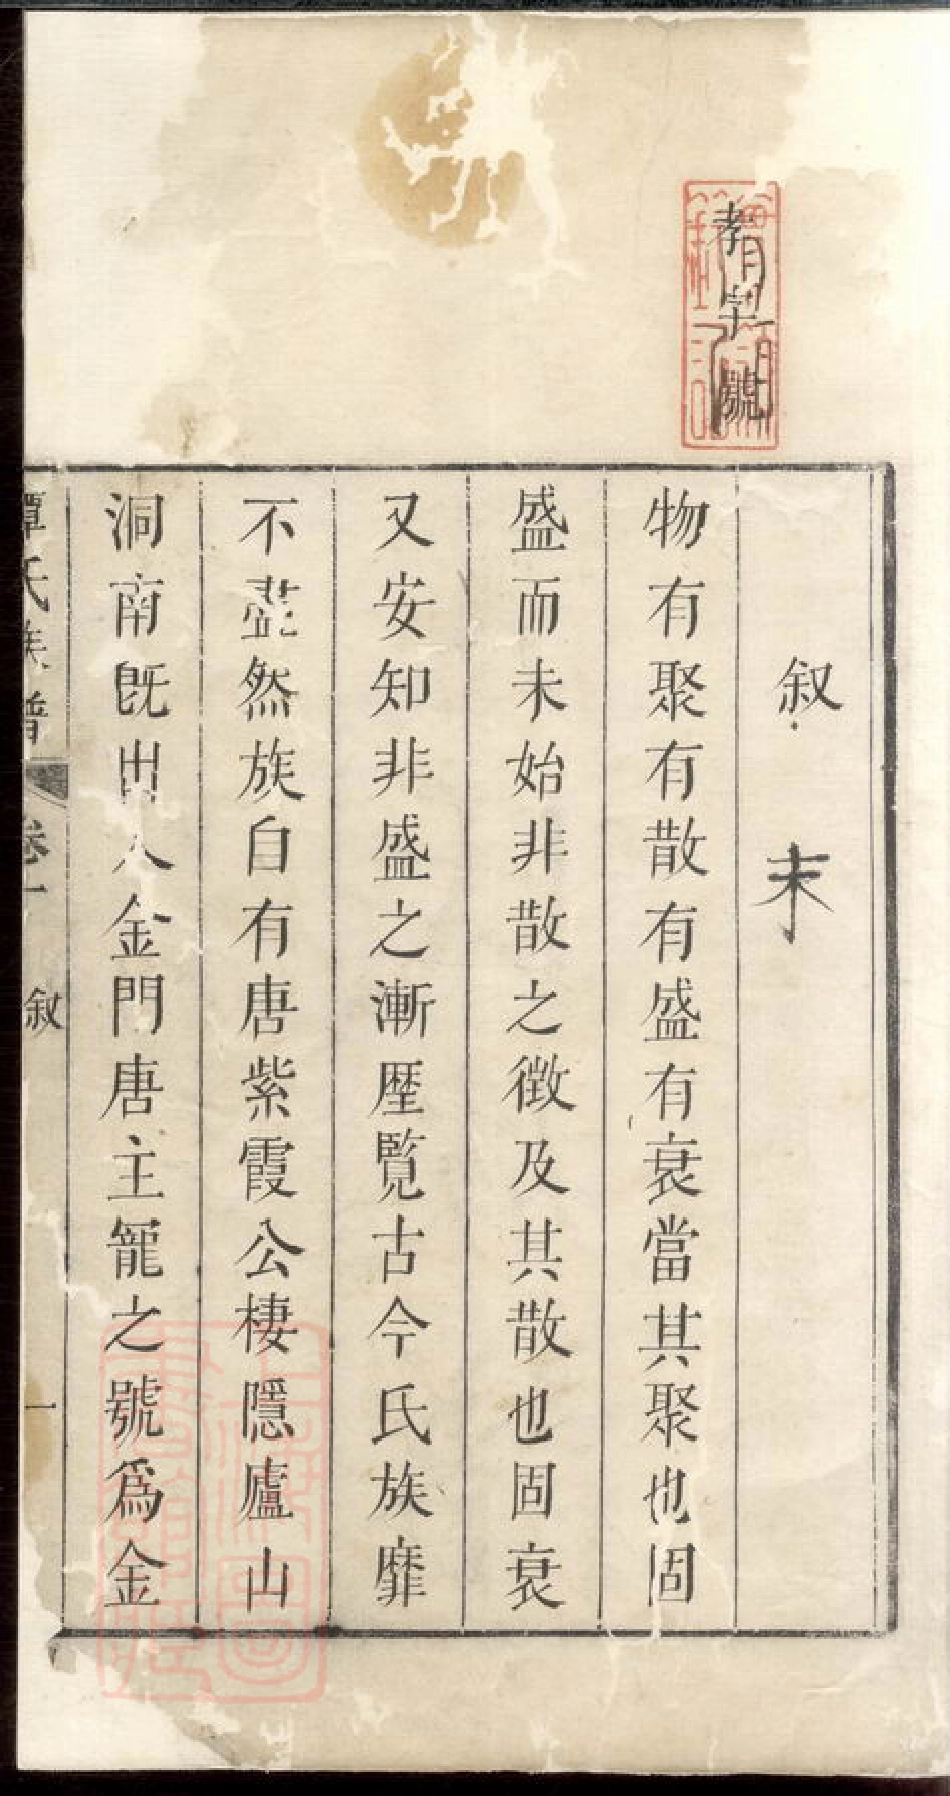 孝字號
叙末
物有聚有散有盛有衰當其聚也固
盛而未始非散之徴及其散也固衰
又安知非盛之漸歷覽古今氏族靡
不然族自有唐紫霞公棲隱廬山
洞南旣出入金門唐主寵之號爲金
譚氏族譜 卷一 叙 一